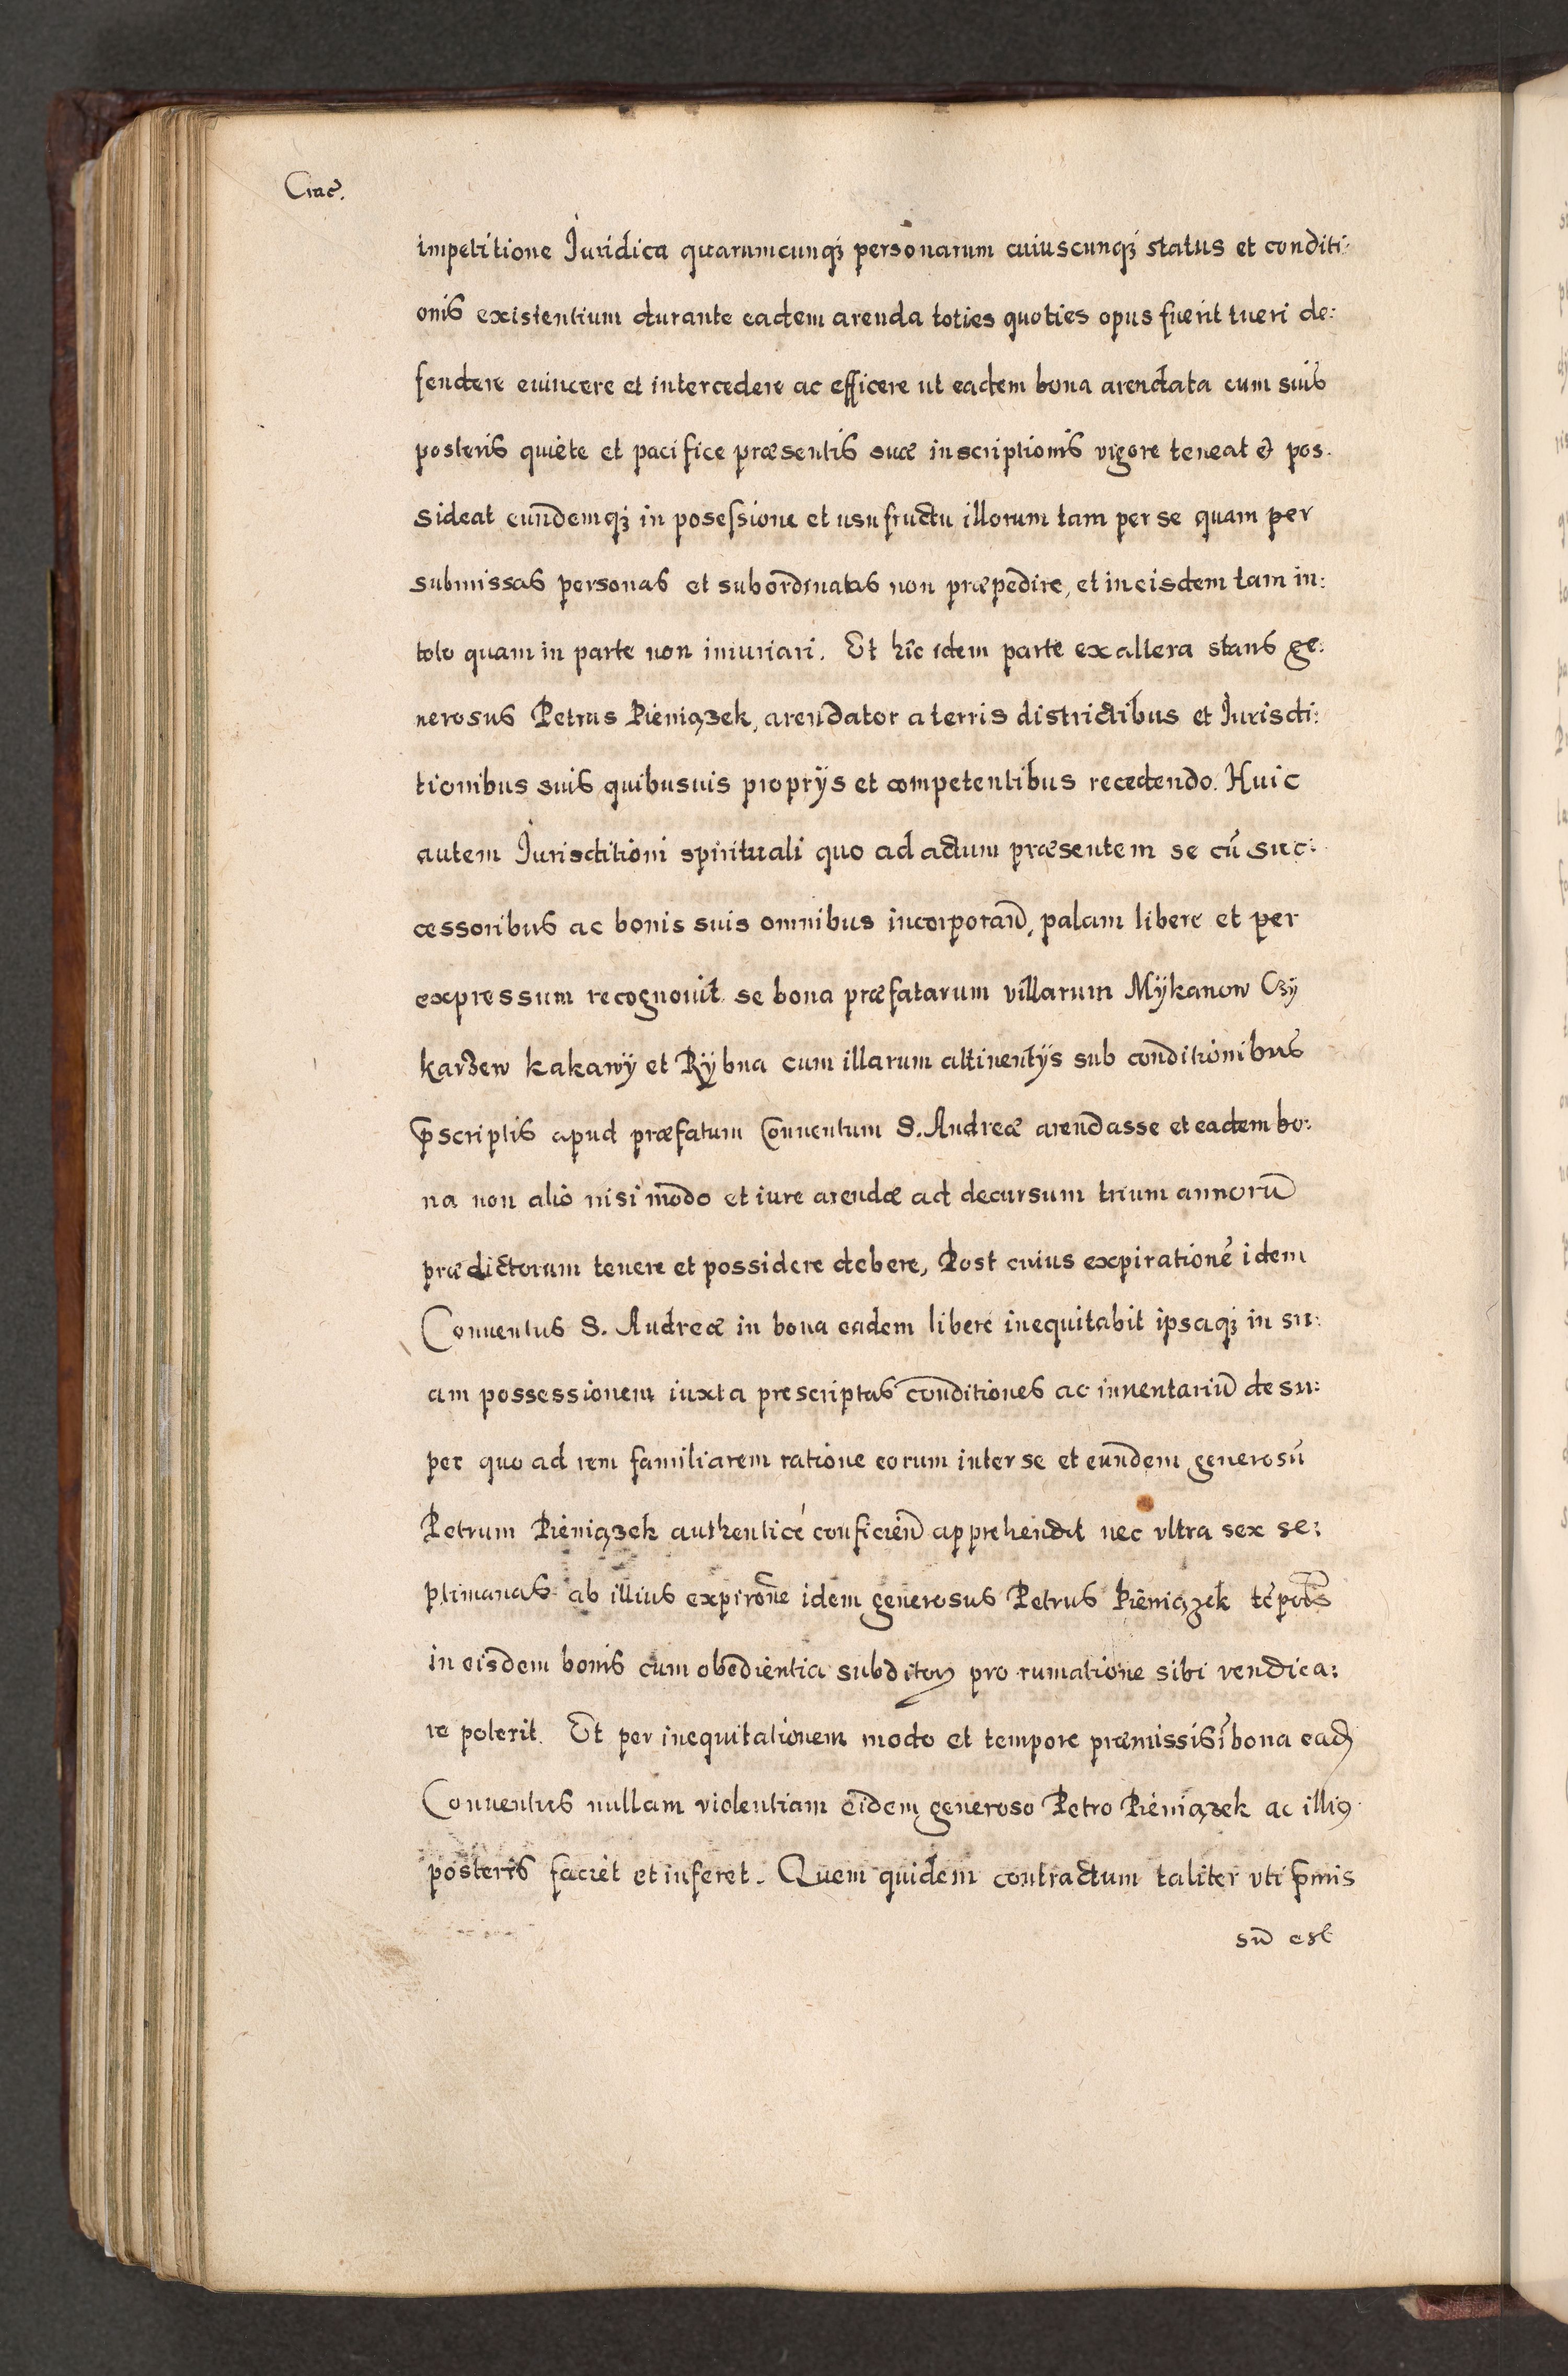 Crac̃.
impetitione Juridica quarumcunqꝫ personarum cuiuscunqꝫ status et conditi:
onis existentium durante eadem arenda toties quoties opus fuerit tueri de:
fendere euincere et intercedere ac efficere ut eadem bona arendata cum suis
posteris quiete et pacifice præsentis suæ inscriptionis vigore teneat & pos.
sideat eundemqꝫ in poseſsione et usufructu illorum tam per se quam per
submissas personas et subordinatas non præpedire, et in eisdem tam in:
toto quam in parte non iniuriari. Et hic idem parte ex altera stans ge:
nerosus Petrus Pieniązek, arendator a terris districtibus et Jurisdi:
tionibus suis quibusuis proprÿs et competentibus recedendo. Huic
autem Jurisditioni spirituali quo ad actum præsentem se cũ suc:
cessoribus ac bonis suis omnibus incorporañ, palam libere et per
expressum recognouit se bona præfatarum villarum Mÿkanow Czÿ
karzew kakawÿ et Rÿbna cum illarum attinentÿs sub conditionibus
p̃scriptis apud præfatum Conuentum S. Andreæ arendasse et eadem bo:
na non alio nisi modo et iure arendæ ad decursum trium annorũ
prædictorum tenere et possidere debere, Post cuius expirationẽ idem
Conuentus S. Andreæ in bona eadem libere inequitabit ipsaqꝫ in su:
am possessionem iuxta prescriptas conditiones ac inuentariũ desu:
per quo ad rem familiarem ratione eorum inter se et eundem generosũ
Petrum Pieniązek authenticé conficieñ apprehendit nec vltra sex se:
ptimanas ab illius expirõne idem generosus Petrus Pieniązek tẽpõris
in eisdem bonis cum obedientia subditoꝝ pro rumatione sibi vendica:
re poterit. Et per inequitationem modo et tempore præmissis ĩ bona eadꝫ
Conuentus nullam violentiam eidem generoso Petro Pieniązek ac illiꝰ
posteris faciet et inferet. Quem quidem contractum taliter vti p̃mis
sũ est